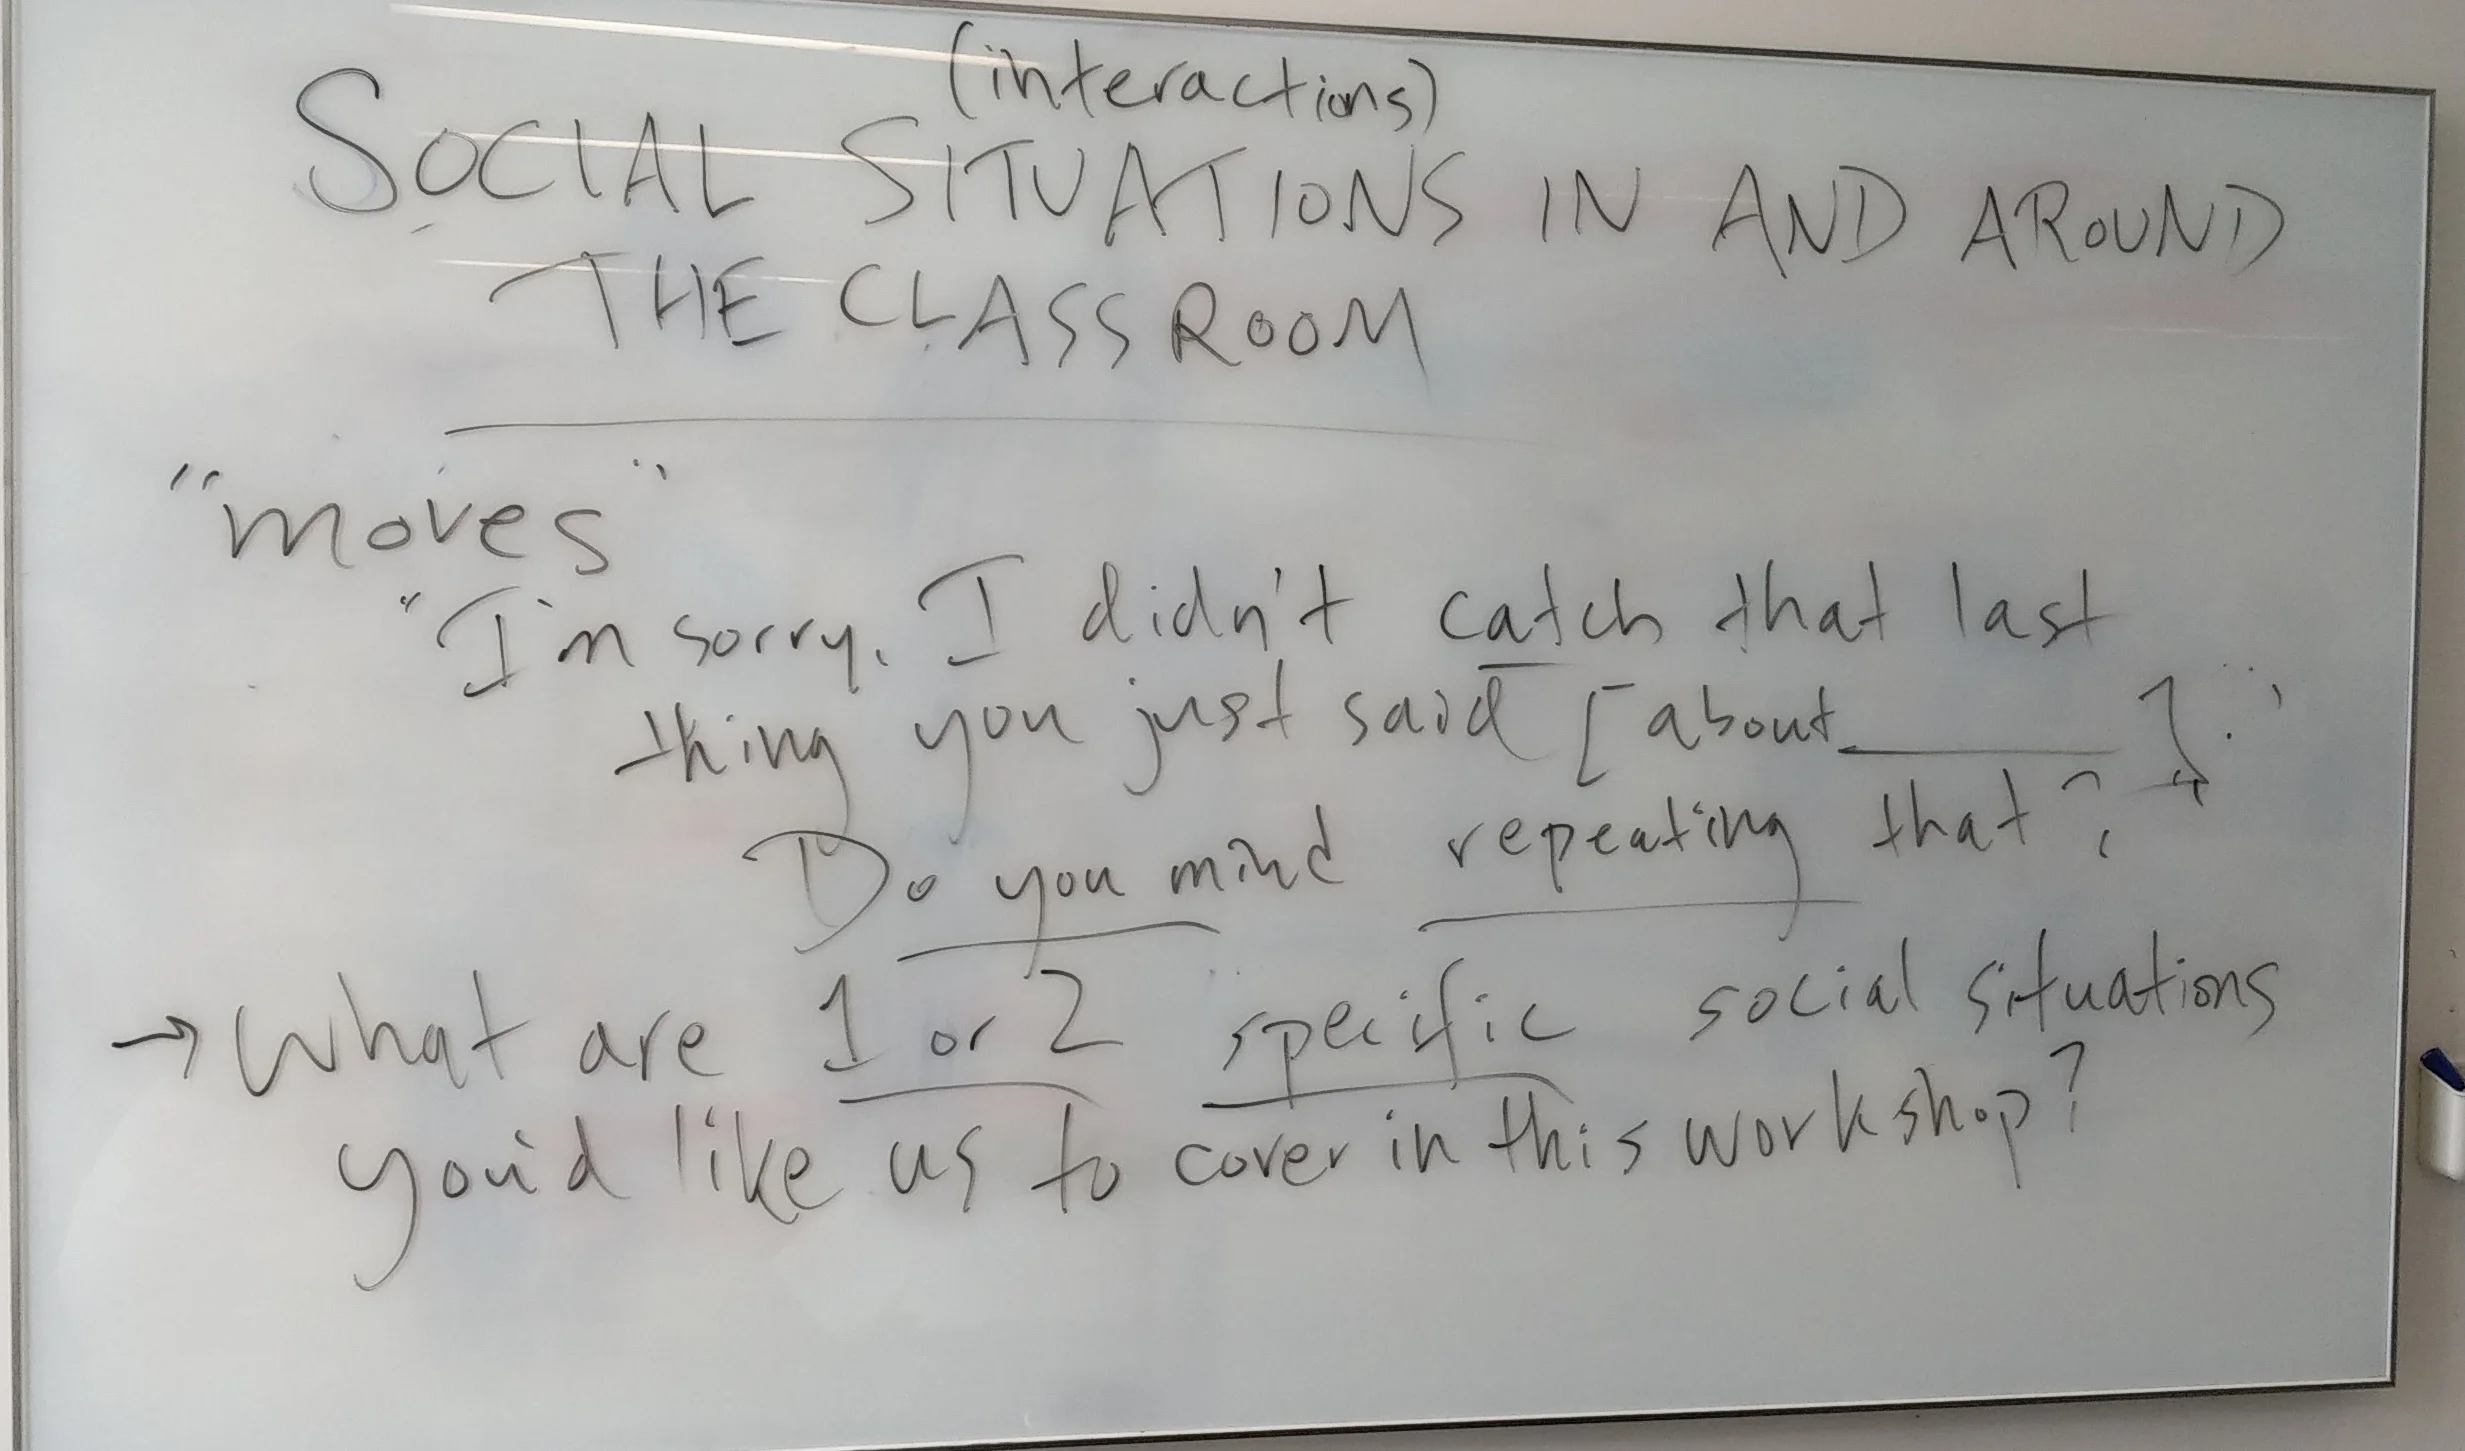 (interactions)
SOCIAL SITUATIONS IN AND AROUND
THE CLASSROOM
"moves"
"I'm sorry. I didn't catch that last
thing you just said [about ______]."
Do you mind repeating that?
→ What are 1 or 2 specific social situations
you'd like us to cover in this workshop?